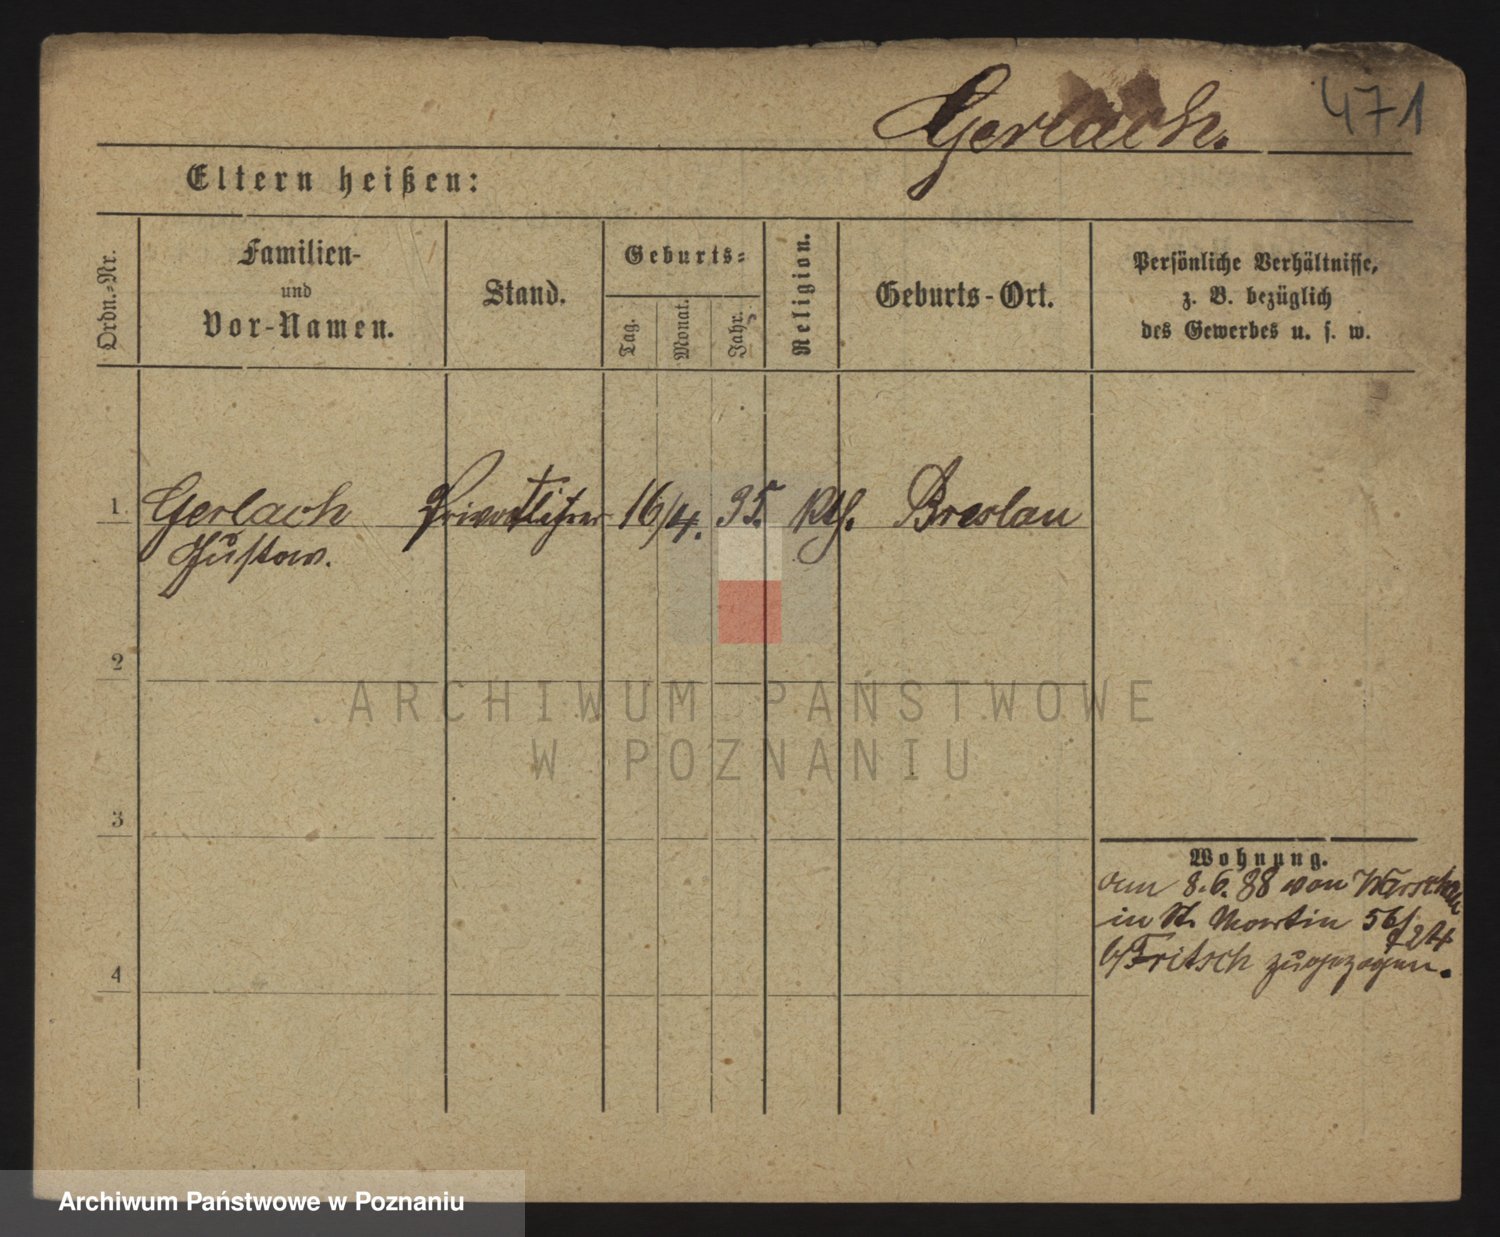 Gerlach.
471
Eltern heißen:
Ordn.-Nr.
Familien-
und
Vor-Namen.
Stand.
Geburts-
Tag.
Monat.
Jahr.
Religion.
Geburts-Ort.
Persönliche Verhältnisse,
z. B. bezüglich
des Gewerbes u. s. w.
1. Gerlach Privatlehrer 16/4. 35. kth. Breslau
Gustav.
2
3
4
Wohnung.
am 8.6.88 von Warschau
in St. Martin 56/
724
b/Fritsch zugezogen.
ARCHIWUM PAŃSTWOWE
W POZNANIU
Archiwum Państwowe w Poznaniu